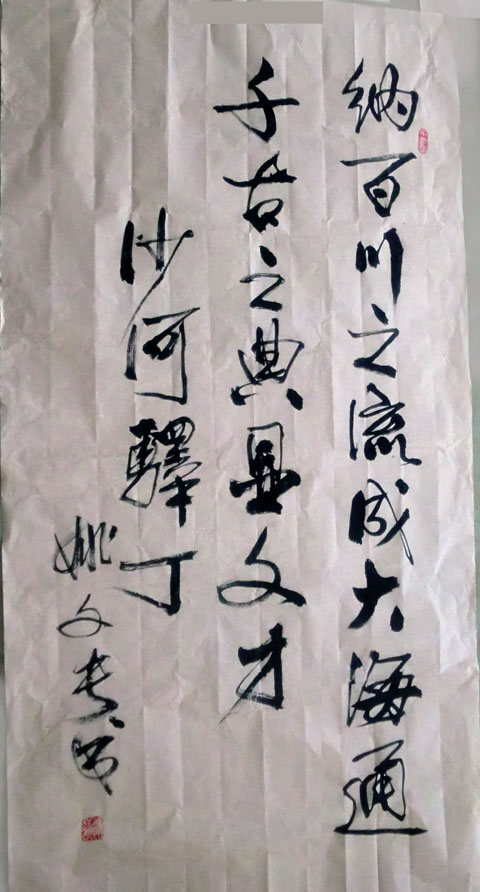 纳百川之流成大海通
千古之典显文才
沙河驿丁
姚文